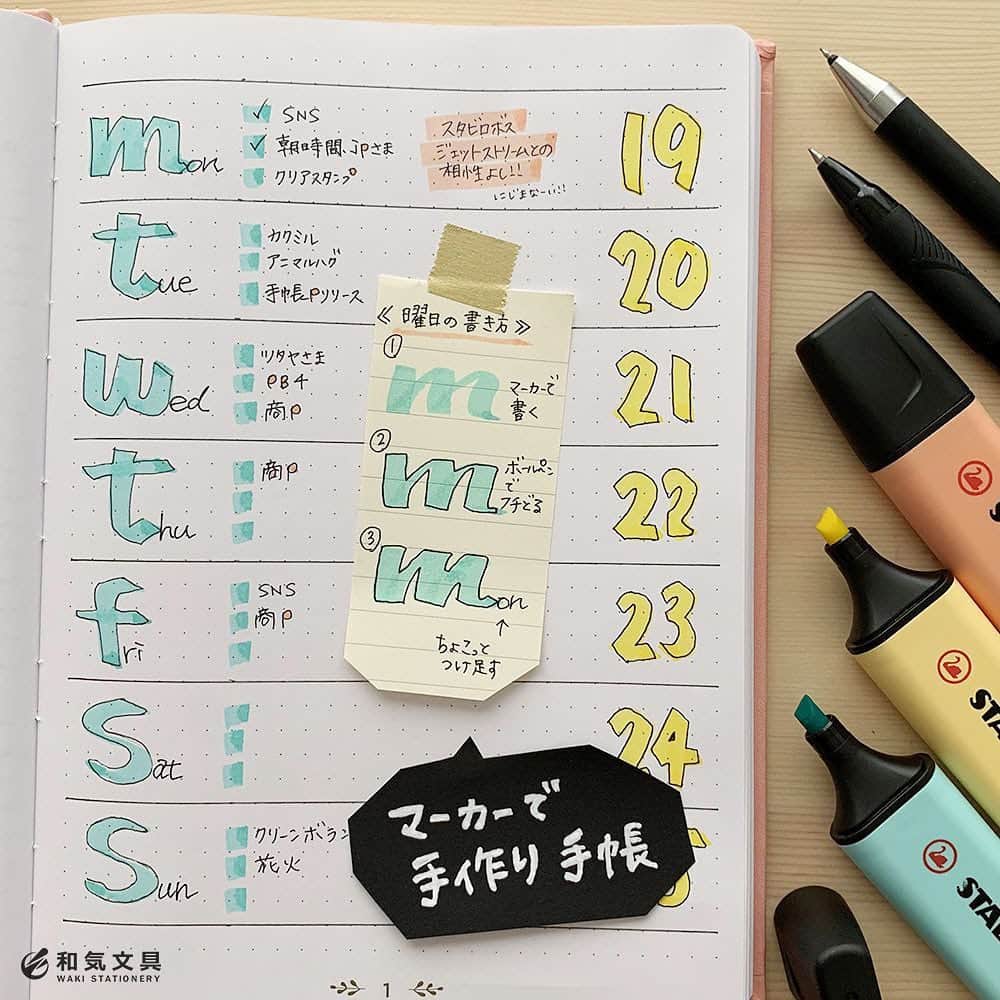 mon
✓ SNS
✓ 朝時間.jpさま
クリアスタンプ
スタビロボス
ジェットストリームとの
相性よし!!
にじまなーい!!
19
tue
カクミル
アニマルハグ
手帳Pリリース
20
wed
ツタヤさま
PB4
商P
21
thu
商P
22
fri
SNS
商P
23
sat
24
sun
クリーンボラン
花火
≪ 曜日の書き方 ≫
① m マーカーで
書く
② m ボールペン
で
フチどる
③ mon
↑
ちょこっと
つけ足す
マーカーで
手作り手帳
STA
STAB
和気文具
WAKI STATIONERY
1